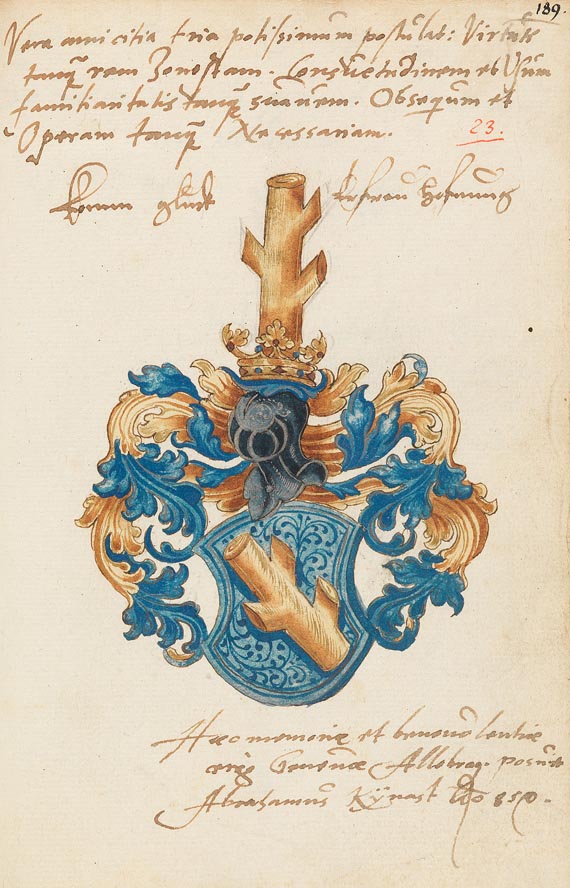 189.
Vera amicitia tria potissimum postulat: Virtutē
tanq̄ rem honestam. Consuetudinem et Usum
familiaritatis tanq̄ suavem. Obsequium et
Operam tanq̄ Necessariam.
23.
Komm glück Erfreu hofnung
Haec memoriae et benevolentiae
ergo Genevae Allobrog. posuit
Abrahamus Kÿnast